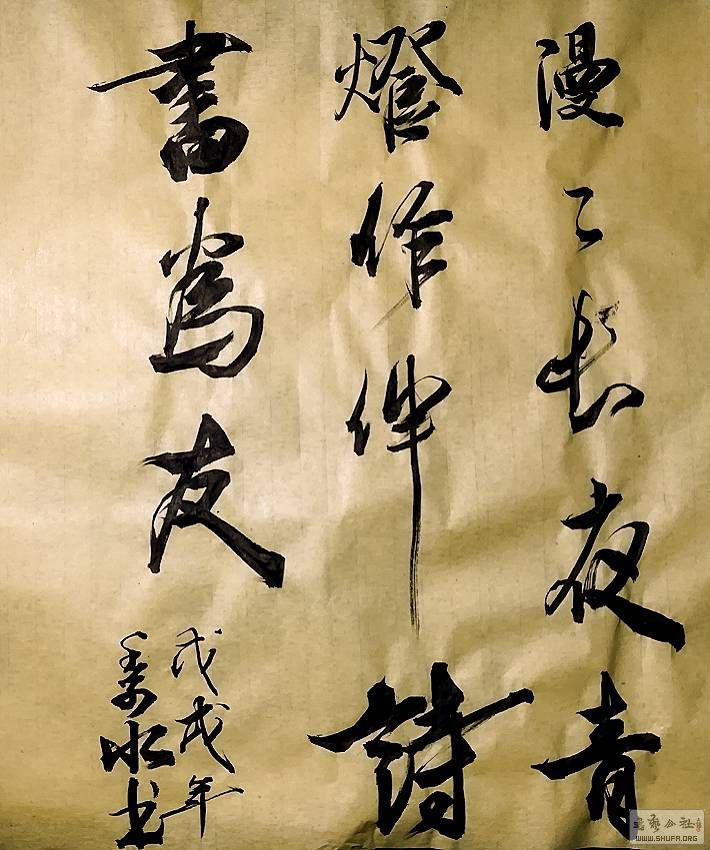 漫〻長夜青
燈作伴詩
書為友
戊戌年
秀水书
WWW.SHUFA.ORG